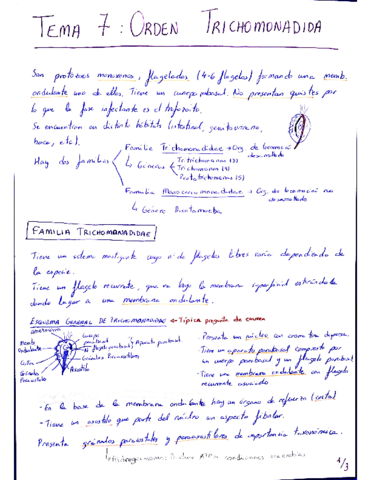 TEMA 7: ORDEN TRICHOMONADIDA
Son protozoos monoxenos, flagelados (4-6 flagelos) formando una memb.
ondulante uno de ellos. Tiene un cuerpo parabasal. No presentan quistes por
lo que la fase infectante es el trofozoito.
Se encuentran en distinto hábitats (intestinal, genitourinario,
boca, etc).
Hay dos familias
Familia Trichomonadidae → Org. de locomoción desarrollado
↳ Géneros
Tritrichomonas (3)
Trichomonas (4)
Pentatrichomonas (5)
Familia Monocercomonadidae → Org. de locomoción no desarrollado
↳ Género Dientamoeba
FAMILIA TRICHOMONADIDAE
Tiene un sistema mastigonte cuyo nº de flagelos libres varía dependiendo de
la especie.
Tiene un flagelo recurrente, que va bajo la membrana superficial estirándola
dando lugar a una membrana ondulante.
ESQUEMA GENERAL DE TRICHOMONADIDAE → Típica pregunta de examen
Memb. Ondulante
Costa
Gránulos Paracostales
Cuerpo parabasal
Aparato parabasal
Axostilo
- Presenta un núcleo con cromatina dispersa.
- Tiene un aparato parabasal compuesto por
un cuerpo parabasal y un flagelo parabasal
- Tiene una membrana ondulante con flagelo
recurrente asociado
- En la base de la membrana ondulante hay un órgano de refuerzo (costa)
- Tiene un axostilo que parte del núcleo un aspecto tubular.
Presenta gránulos paracostales y paraaxostilares de importancia taxonómica.
↳ Hidrogenosomas: Producen ATP en condiciones anaerobias
1/3